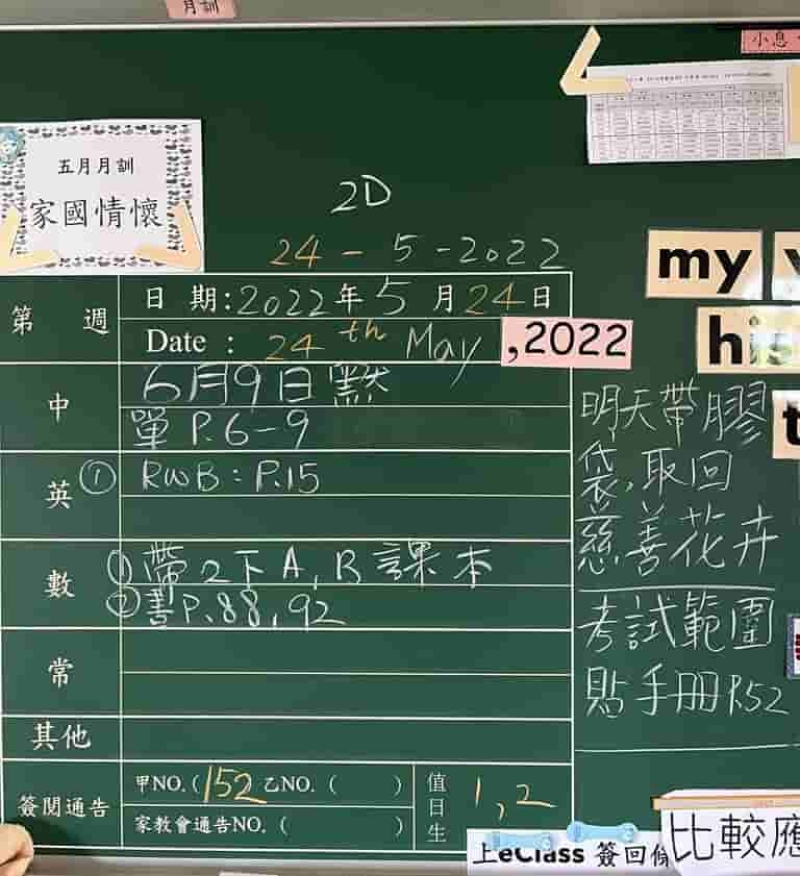 月訓
小息
五月月訓
家國情懷
2D
24-5-2022
my
第 週
日 期:2022年5月24日
Date : 24th May ,2022
中
6月9日默
單 P.6-9
英
① RWB : P.15
數
①帶2下A, B 課本
②書P.88, 92
常
其他
簽閱通告
甲NO.(152 乙NO. ( )
家教會通告NO. ( )
值日生
1, 2
明天帶膠
袋,取回
慈善花卉
考試範圍
貼手冊P.52
his
t
上eClass 簽回條
比較應